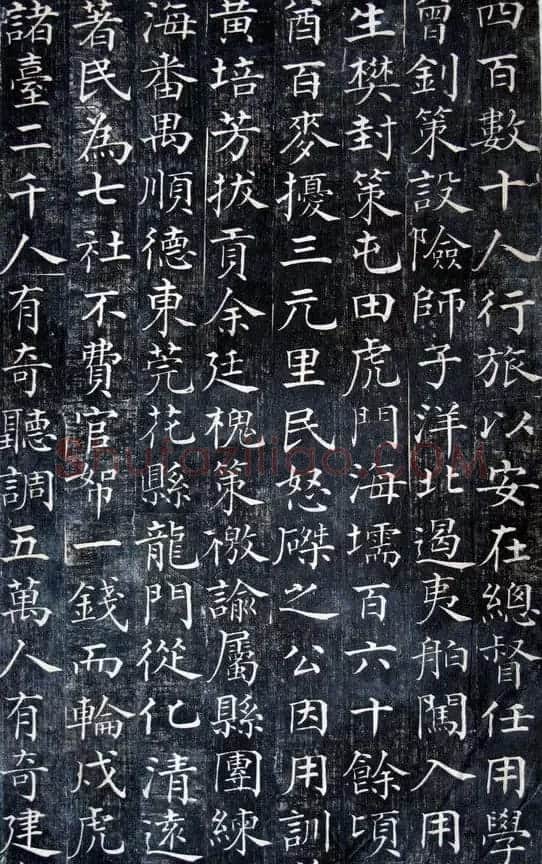 四百數十人行旅以安在總督任用學
曾釗策設險師子洋北遏夷舶闖入用
生樊封策屯田虎門海壖百六十餘頃
酋百麥擾三元里民怒磔之公因用訓
黃培芳拔貢余廷槐策檄諭屬縣團練
海番禺順德東莞花縣龍門從化清遠
著民為七社不費官帑一錢而輪戍虎
諸臺二千人有奇聽調五萬人有奇建
Shufaziliao.COM